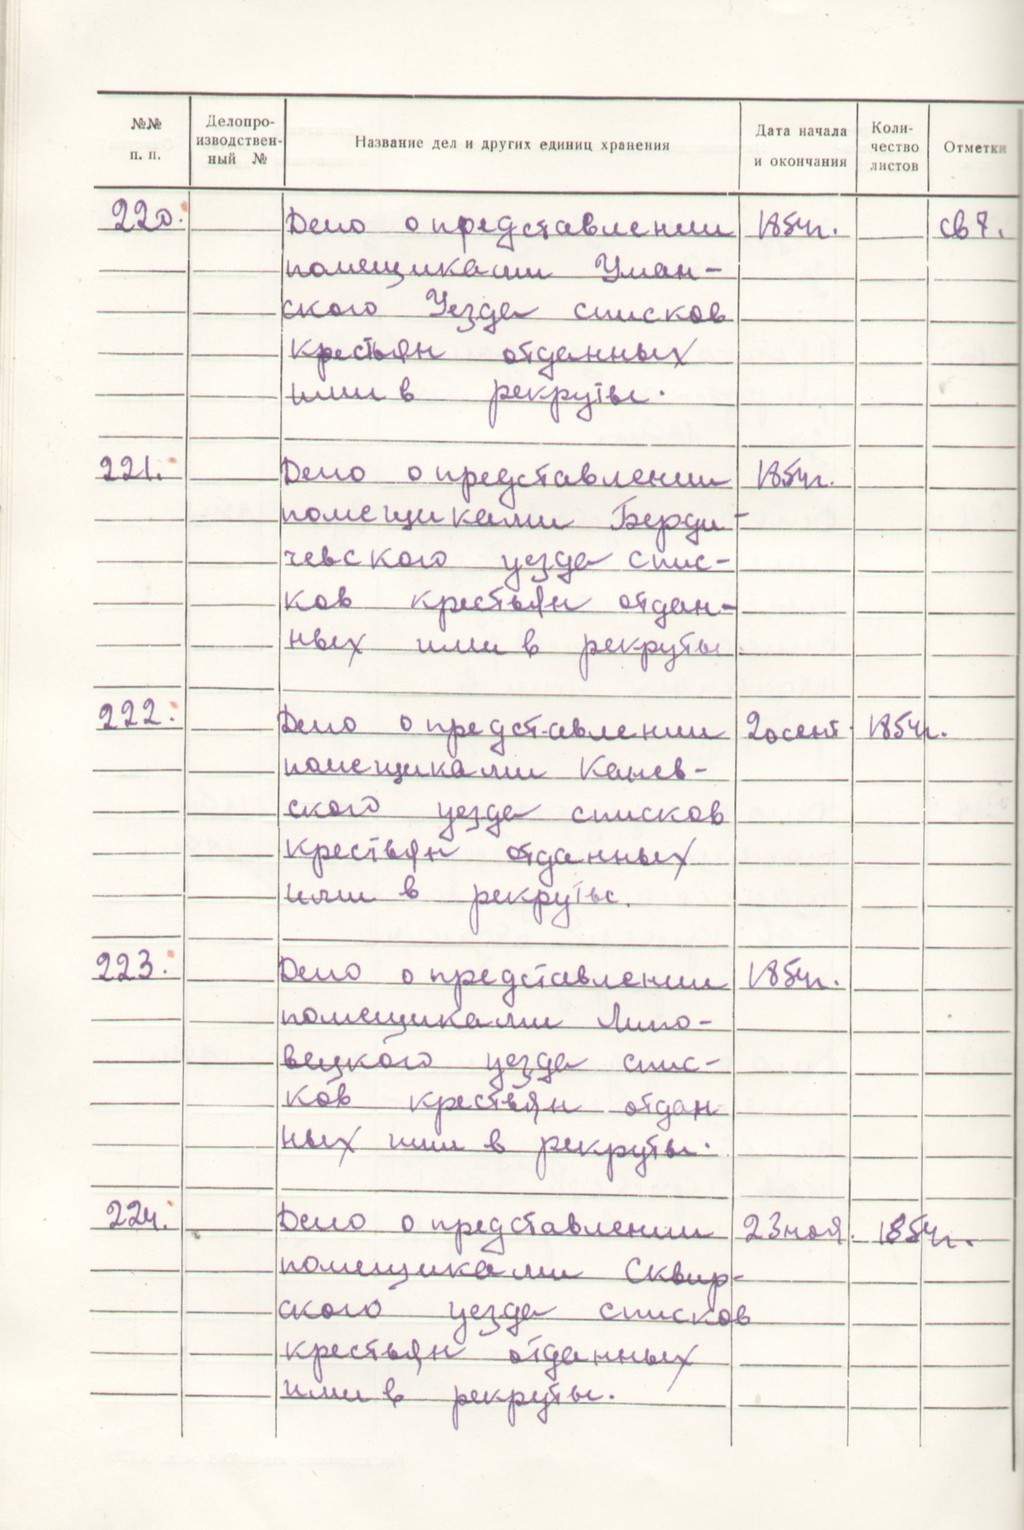 №№ п. п.
Делопро-
изводствен-
ный №
Название дел и других единиц хранения
Дата начала
и окончания
Коли-
чество
листов
Отметки
220. Дело о представлении 1854г. св 7.
помещиками Уман-
ского Уезда списков
крестьян отданных
ими в рекруты.
221. Дело о представлении 1854г.
помещиками Берди-
чевского уезда спис-
ков крестьян отдан-
ных ими в рекруты
222. Дело о представлении 20 сент. 1854г.
помещиками Канев-
ского уезда списков
крестьян отданных
ими в рекруты.
223. Дело о представлении 1854г.
помещиками Липо-
вецкого уезда спис-
ков крестьян отдан
ных ими в рекруты.
224. Дело о представлении 23 ноя. 1854г.
помещиками Сквир-
ского уезда списков
крестьян отданных
ими в рекруты.